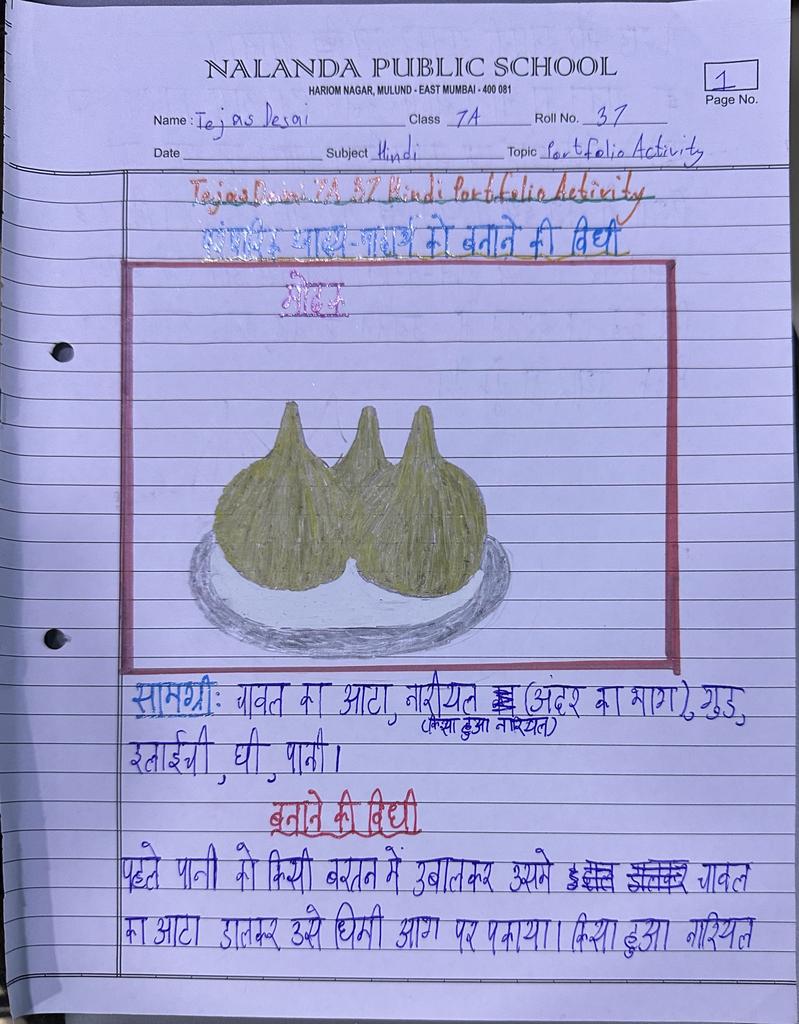 NALANDA PUBLIC SCHOOL
HARIOM NAGAR, MULUND - EAST MUMBAI - 400 081
1
Page No.
Name : Tejas Desai Class 7A Roll No. 37
Date Subject Hindi Topic Portfolio Activity
Tejas Desai 7A 37 Hindi Portfolio Activity
खाद्य-पदार्थ को बनाने की विधी
मोदक
सामग्री: चावल का आटा, नारीयल (अंदर का भाग), गुड़,
(किसा हुआ नारियल)
इलाईची, घी, पानी।
बनाने की विधी
पहले पानी को किसी बरतन में उबालकर उसमे चावल
का आटा डालकर उसे धिमी आग पर पकाया। किसा हुआ नारियल